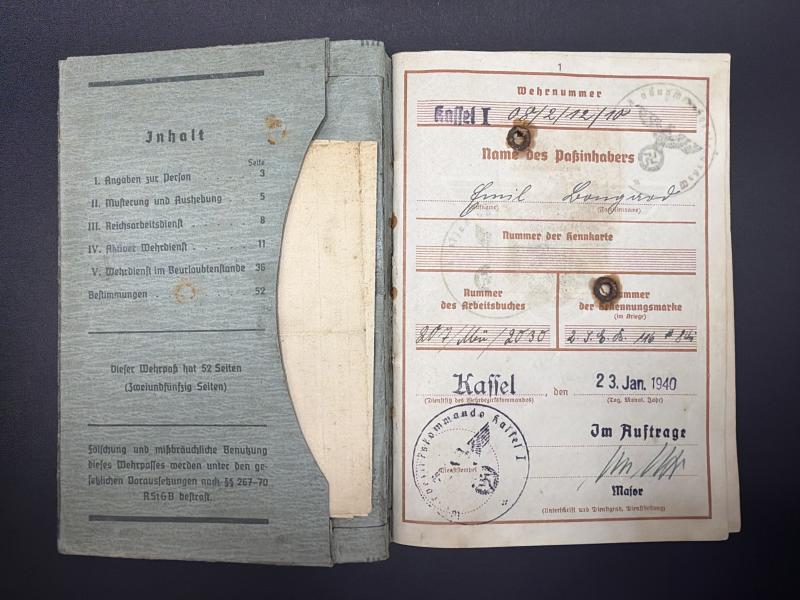 Inhalt
Seite
I. Angaben zur Person 3
II. Musterung und Aushebung 5
III. Reichsarbeitsdienst 8
IV. Aktiver Wehrdienst 11
V. Wehrdienst im Beurlaubtenstande 36
Bestimmungen 52
Dieser Wehrpaß hat 52 Seiten
(Zweiundfünfzig Seiten)
Fälschung und mißbräuchliche Benutzung
dieses Wehrpasses werden unter den ge-
setzlichen Voraussetzungen nach §§ 267-70
RStGB bestraft.
1
Wehrnummer
Kassel I 08/2/12/10
Name des Paßinhabers
Emil Bongard
(Vorname) (Familienname)
Nummer der Kennkarte
Nummer
des Arbeitsbuches
Nummer
der Erkennungsmarke
(im Kriege)
207/Mü/2030
Kassel, den 23. Jan. 1940
(Dienstsitz des Wehrbezirkskommandos) (Tag, Monat, Jahr)
Wehrbezirkskommando Kassel I
Dienststempel
Im Auftrage
Major
(Unterschrift und Dienstgrad, Dienststellung)